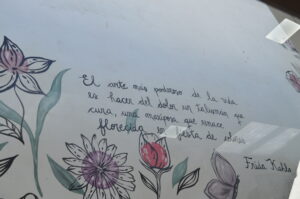 El arte más poderoso de la vida
es hacer del dolor un talismán que
cura, una mariposa que renace
florecida en fiesta de colores
Frida Kahlo